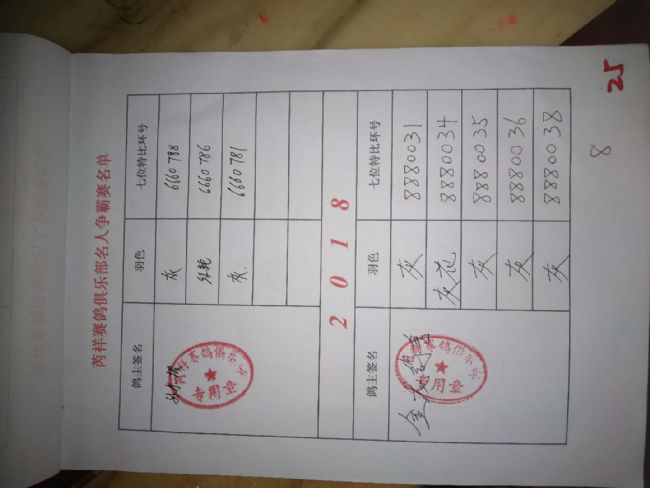 芮祥赛鸽俱乐部名人争霸赛名单
鸽主签名 羽色 七位特比环号
灰 6660788
红轮 6660786
灰 6660781
2018
鸽主签名 羽色 七位特比环号
灰 8880031
灰花 8880034
灰 8880035
灰 8880036
灰 8880038
8
25